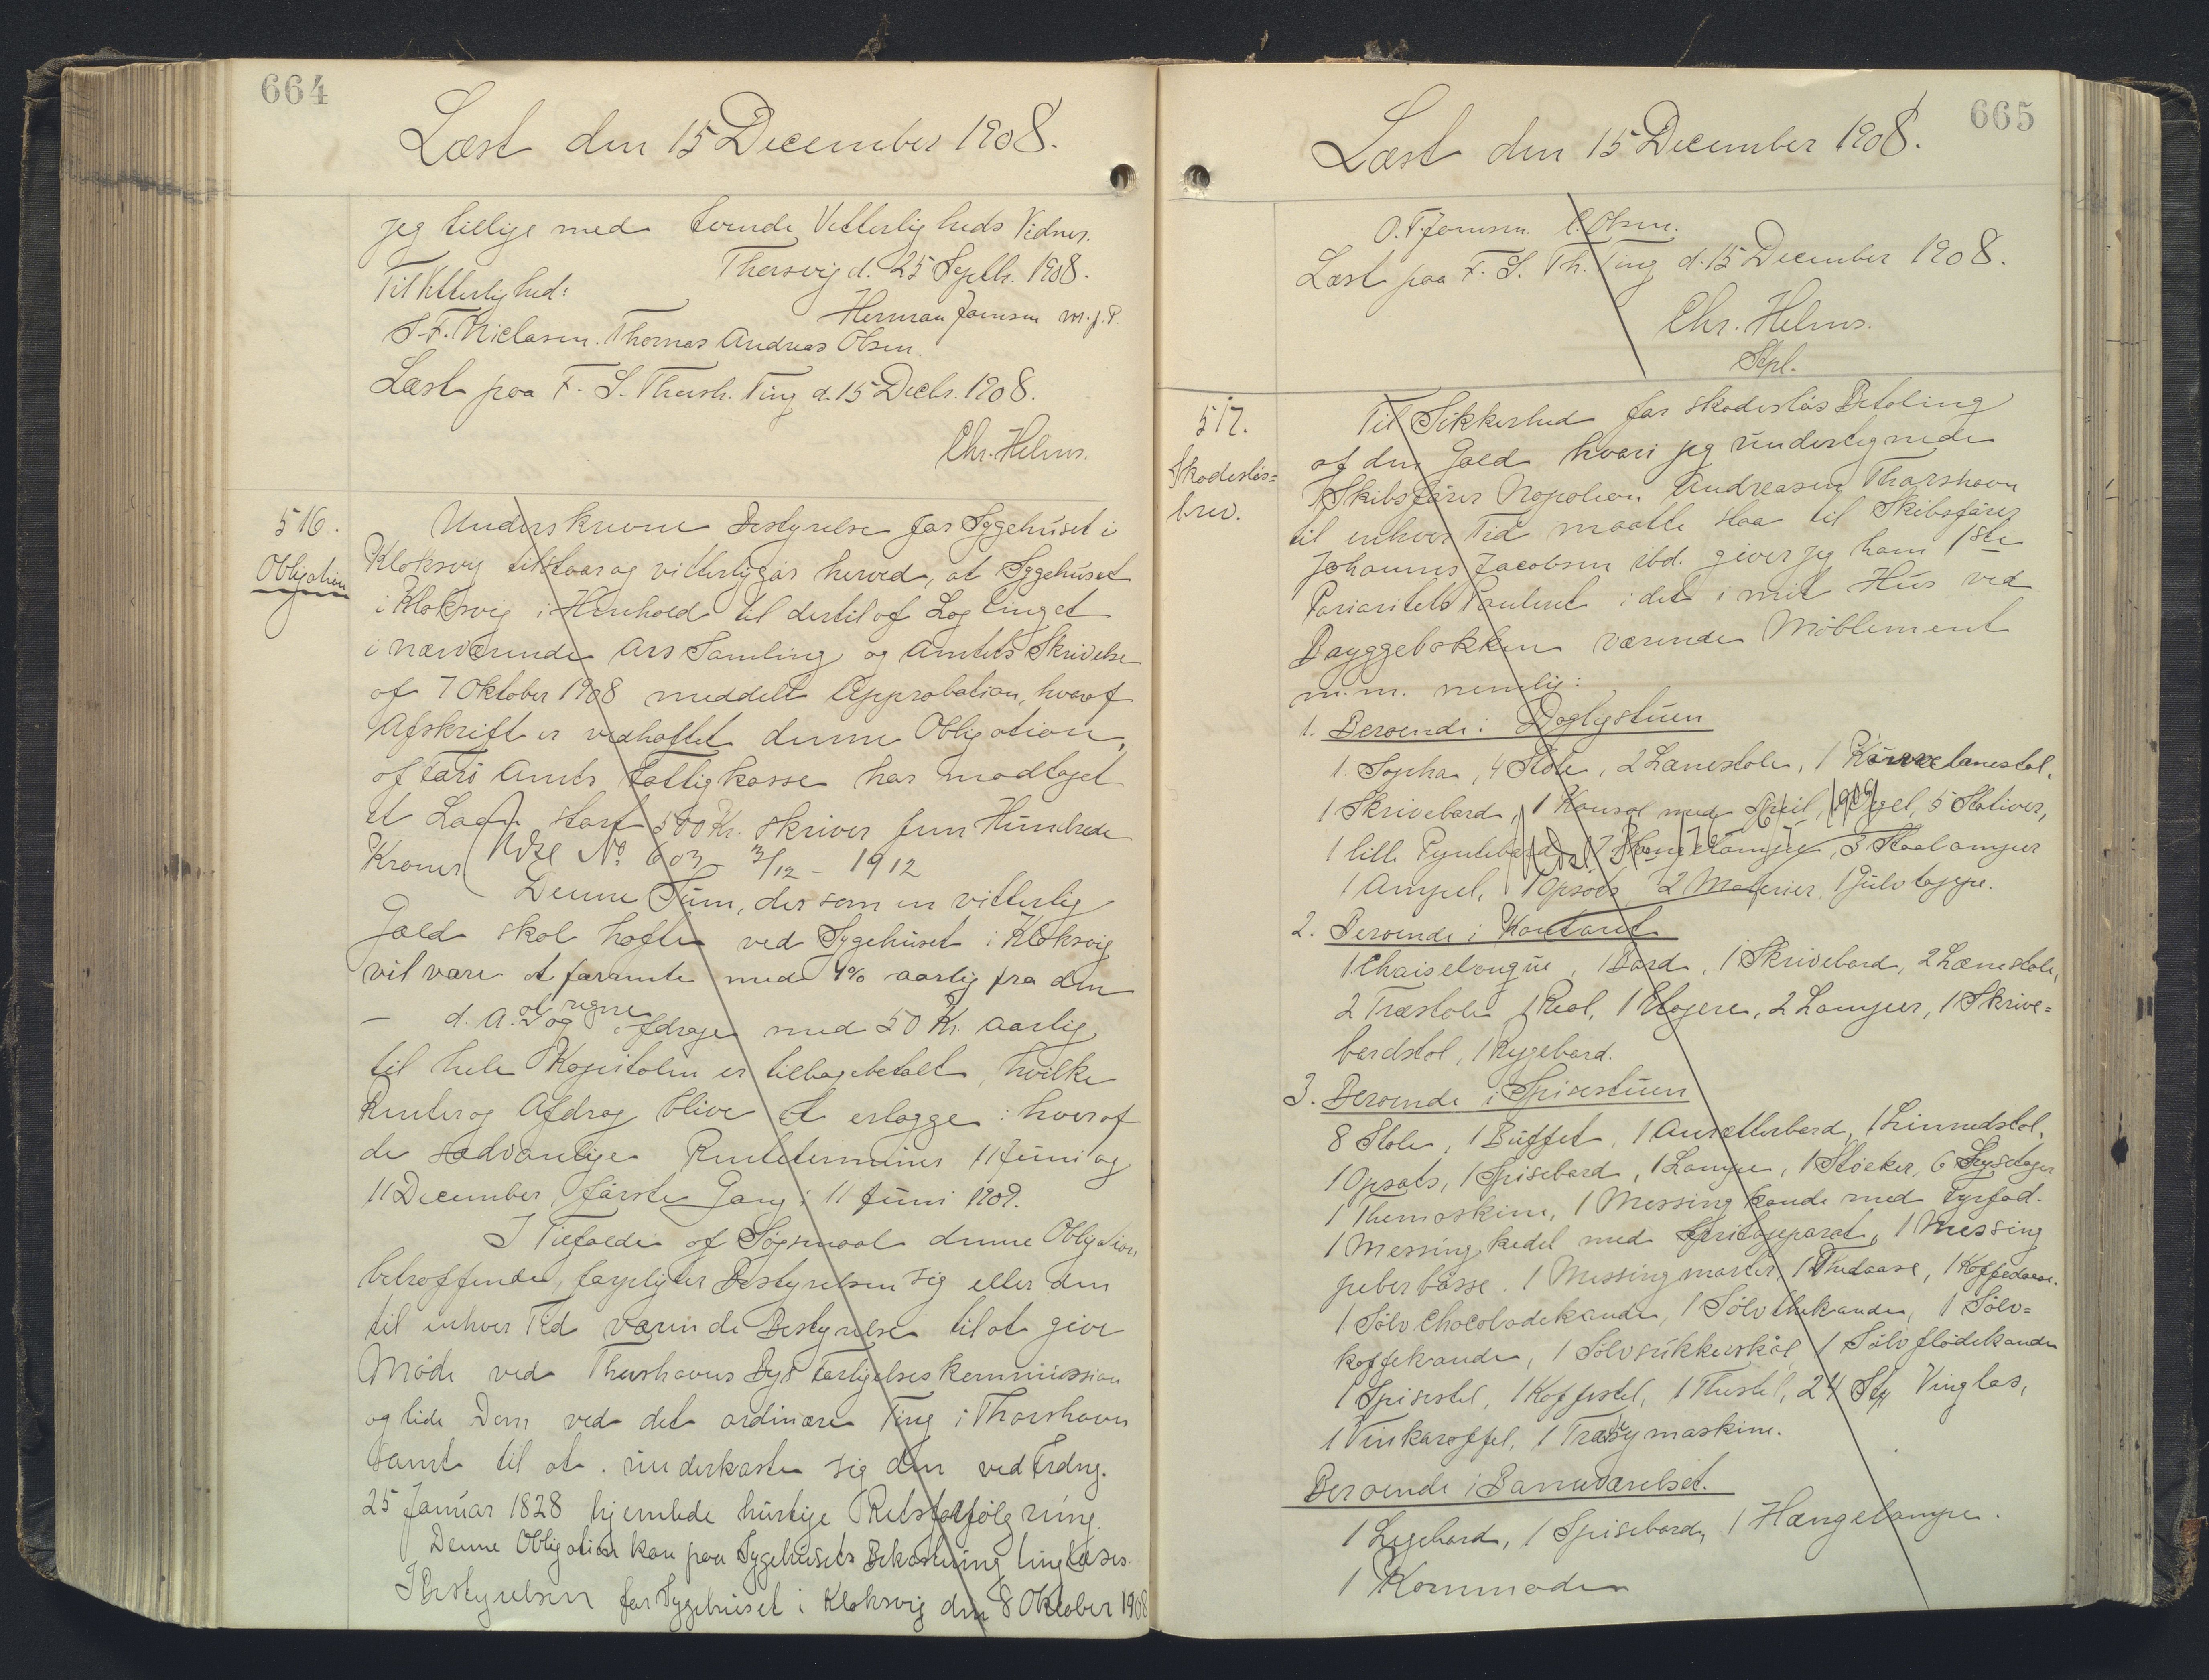 664
Læst den 15 December 1908.
jeg tillige med tvende Vitterligheds Vidner.
Thorsvig d. 25 Septbr. 1908.
Til Vitterlighed:
Herman Joensen m.f.P.
J. F. Niclasen. Thomas Andreas Olsen.
Læst paa F. S. Thorsh. Ting d. 15 Decbr. 1908.
Chr. Helms.
516.
Obligation
Underskrevne Bestyrelse for Sygehuset i
Kloksvig tilstaar og vitterliggør herved, at Sygehuset
i Kloksvig i Henhold til dertil af Lagtinget
i nærværende Aars Samling og Amtets Skrivelse
af 7 Oktober 1908 meddelt Approbation, hvoraf
Afskrift er vedhæftet denne Obligation,
af Færø Amts Fattigkasse har modtaget
et Laan stort 500 Kr. skriver fem Hundrede
Kroner Udsl No. 603 - 3/12 - 1912
Denne Sum, der som en vitterlig
Gæld skal hæfte ved Sygehuset i Kloksvig
vil være at forrente med 4% aarlig fra den
- d. A. at regne og afdrage med 50 Kr. aarlig
til hele Kapitalen er tilbagebetalt, hvilke
Renter og Afdrag blive at erlægge i hver af
de sædvanlige Rentetermines 11 Juni og
11 December, første Gang i 11 Juni 1909.
I Tilfælde af Søgsmaal denne Obligation
betræffende, forpligter Bestyrelsen sig eller den
til enhver Tid værende Bestyrelse til at give
Møde ved Thorshavns Bys Forligelseskommission
og lide Dom ved det ordinære Ting i Thorshavn
samt til at underkaste sig den ved Frdng.
25 Januar 1828 hjemlede hurtige Retsforfølgning.
Denne Obligation kan paa Sygehusets Bekostning tinglæses.
I Bestyrelsen for Sygehuset i Kloksvig den 8 Oktober 1908
665
Læst den 15 December 1908.
O. F. Joensen. C. Olsen.
Læst paa F. S. Th. Ting d. 15 December 1908.
Chr. Helms.
Stpl.
517.
Skadesløs=
brev.
Til Sikkerhed for skadesløs Betaling
af den Gæld hvori jeg undertegnede
Skibsfører Napoleon Andreasen Thorshavn
til enhver Tid maatte staa til Skibsfører
Johannes Jacobsen ibd. giver jeg ham 1ste
Prioritets Panteret i det i mit Hus ved
Bryggebakken værende Møblement
m.m. nemlig:
1. Beroende i Dagligstuen
1 Sopha, 4 Stole, 2 Lænestole, 1 Kurvelænestol,
1 Skrivebord, 1 Konsol med Speil, 5 Stativer,
1 lille Pyntebord, 1 Hængelampe, 3 Staalamper
1 Ampel, 1 Opsats, 2 Malerier, 1 Gulvtæppe.
2. Beroende i Kontoret
1 Chaiselongue, 1 Bord, 1 Skrivebord, 2 Lænestole,
2 Træstole, 1 Reol, 1 Etagere, 2 Lamper, 1 Skrive=
bordstol, 1 Rygebord.
3. Beroende i Spisestuen
8 Stole, 1 Buffet, 1 Anretterbord, 1 Linnedstol,
1 Opsats, 1 Spisebord, 1 Lampe, 6 Lysestager
1 Themaskine, 1 Messing kande med Fyrfad.
1 Messing kedel med Spritapparat, 1 Messing
peberbøsse. 1 Messing morter, 1 Thedaase, 1 Kaffedaase.
1 Sølv Chocoladekande, 1 Sølv thekande, 1 Sølv=
kaffekande, 1 Sølvsukkerskål, 1 Sølv flødekande
1 Spisestel, 1 Kaffestel, 1 Thestel, 24 Stk Vinglas,
1 Vinkaraffel, 1 Trædesymaskine.
Beroende i Barneværelset.
1 Legebord, 1 Spisebord, 1 Hængelampe.
1 Kommode